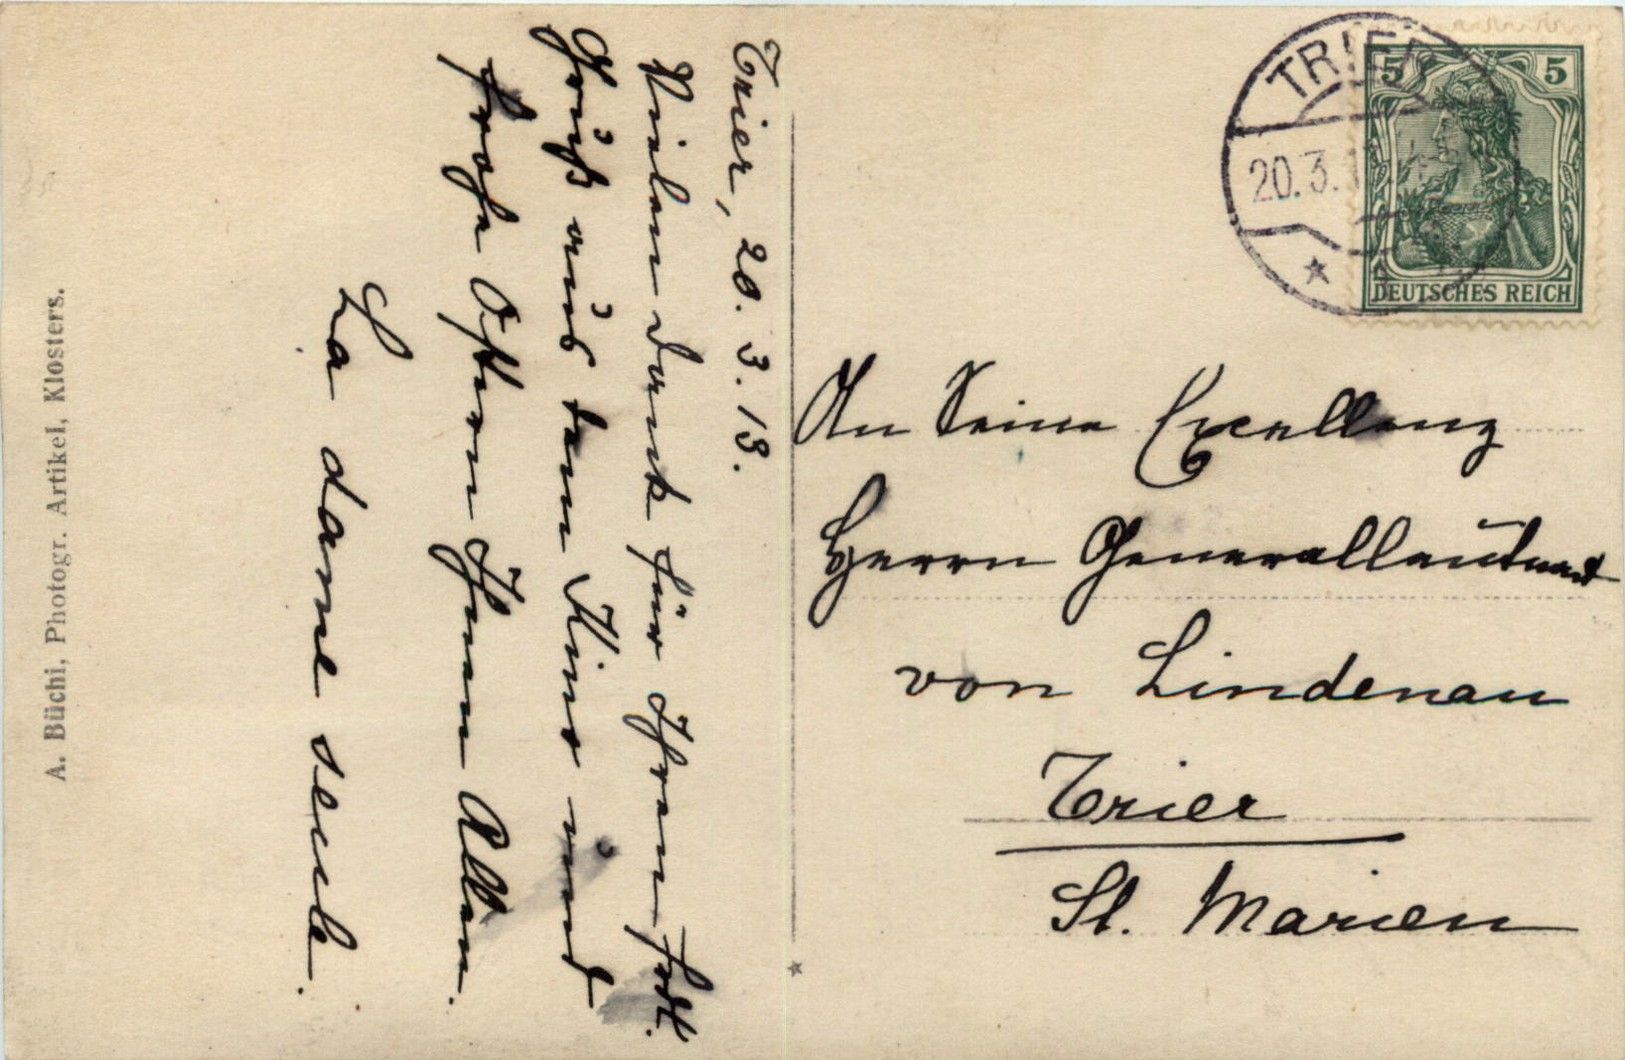 A. Büchi, Photogr. Artikel, Klosters.
Trier, 20.3.13.
Vielen Dank für Ihren frdl.
Gruß aus dem Kino und
frohe Ostern Ihnen Allen.
La dame seule.
TRIER
20.3.1
5 5
DEUTSCHES REICH
An Seine Excellenz
Herrn Generalleutnant
von Lindenau
Trier
St. Marien